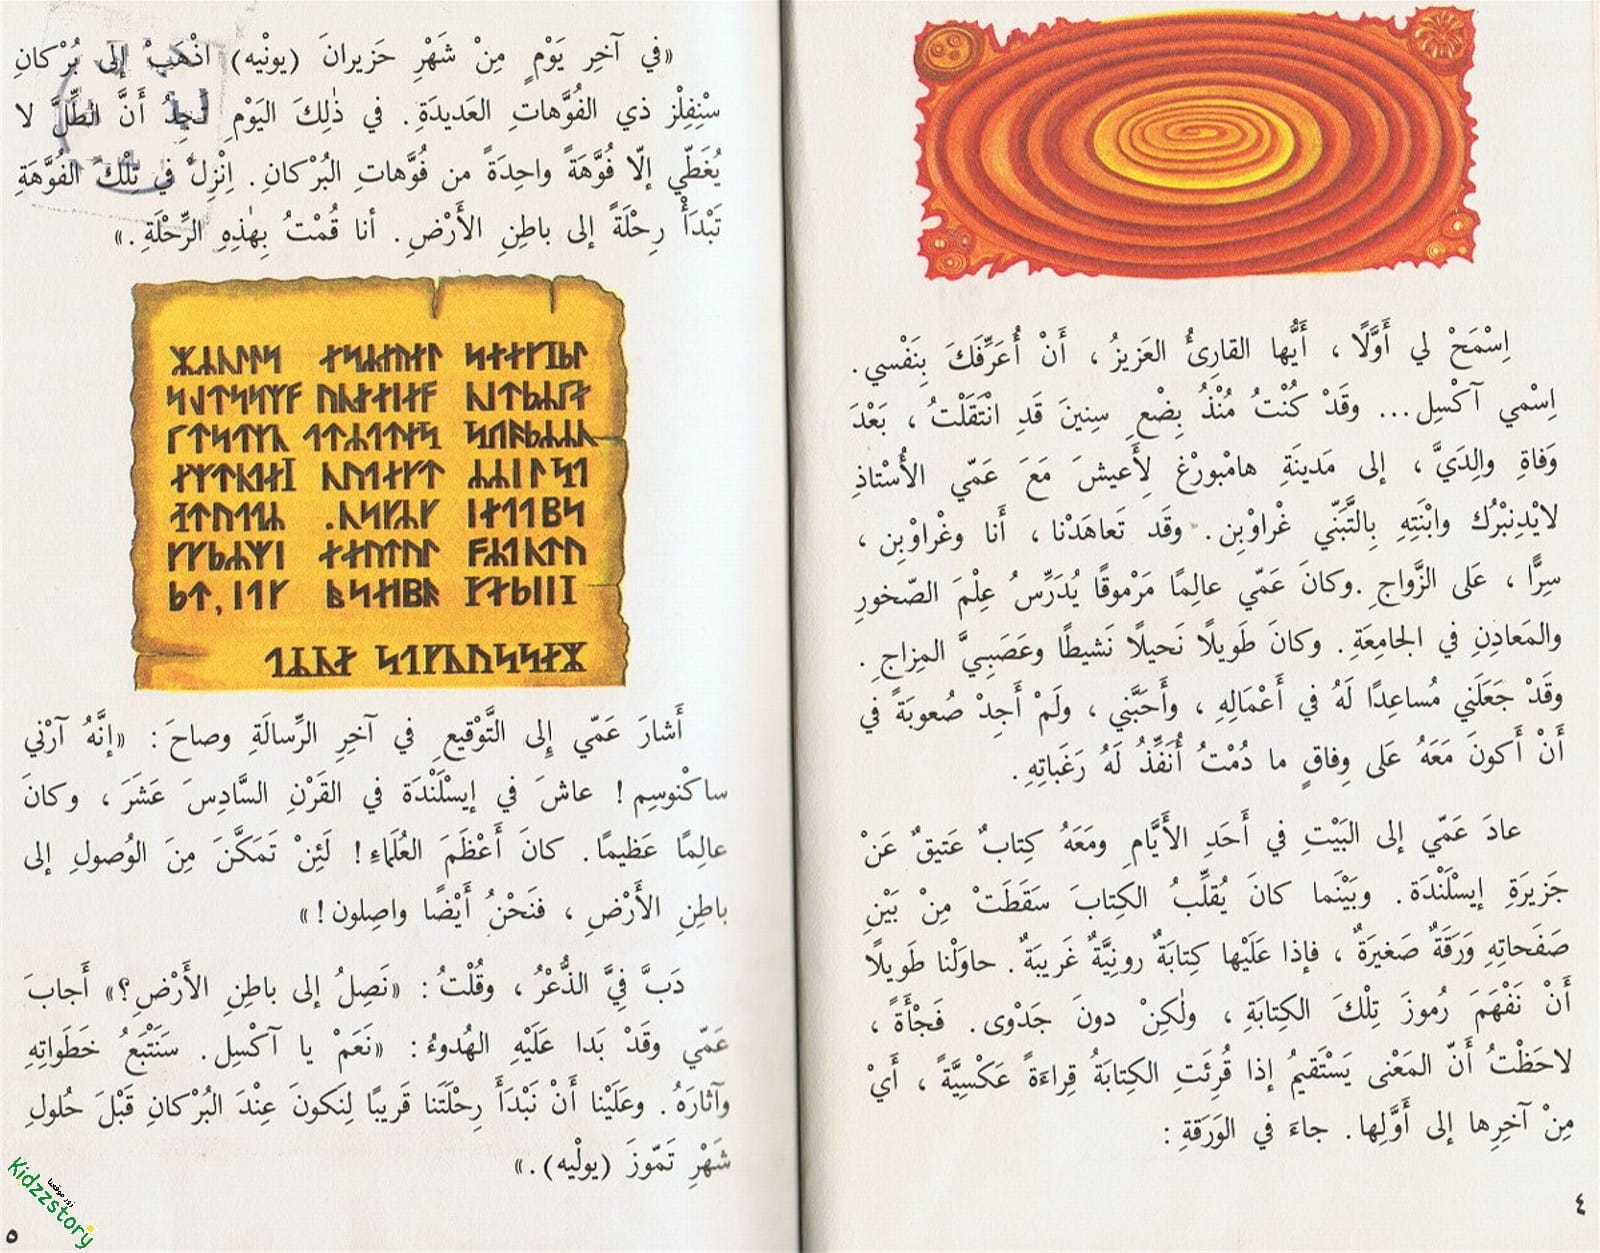 اِسْمَحْ لي أَوَّلًا ، أَيُّها القارِئُ العَزيزُ ، أَنْ أُعَرِّفَكَ بِنَفْسي .
اِسْمي آكْسِل... وقَدْ كُنْتُ مُنْذُ بِضْعِ سِنينَ قَدِ انْتَقَلْتُ ، بَعْدَ
وَفاةِ والِدَيَّ ، إلى مَدينَةِ هامْبورْغ لِأَعيشَ مَعَ عَمّي الأُسْتاذِ
لايْدِنْبْرُك وابْنَتِهِ بِالتَّبَنّي غْراوْبِن . وقَد تَعاهَدْنا ، أَنا وغْراوْبِن ،
سِرًّا ، عَلى الزَّواجِ . وكانَ عَمّي عالِمًا مَرْموقًا يُدَرِّسُ عِلْمَ الصّخورِ
والمَعادِنِ في الجامِعَةِ . وكانَ طَويلًا نَحيلًا نَشيطًا وعَصَبِيَّ المِزاجِ .
وقَدْ جَعَلَني مُساعِدًا لَهُ في أَعْمَالِهِ ، وأَحَبَّني ، ولَمْ أَجِدْ صُعوبَةً في
أَنْ أَكونَ مَعَهُ عَلى وِفاقٍ ما دُمْتُ أُنَفِّذُ لَهُ رَغَباتِهِ .
عادَ عَمّي إلى البَيْتِ في أَحَدِ الأَيَّامِ ومَعَهُ كِتابٌ عَتيقٌ عَنْ
جَزيرَةِ إيسْلَنْدَة . وبَيْنَما كانَ يُقَلِّبُ الكِتابَ سَقَطَتْ مِنْ بَيْنِ
صَفَحاتِهِ وَرَقَةٌ صَغيرَةٌ ، فإذا عَلَيْها كِتابَةٌ رونِيَّةٌ غَريبَةٌ . حاوَلْنا طَويلًا
أَنْ نَفْهَمَ رُموزَ تِلْكَ الكِتابَةِ ، ولٰكِنْ دونَ جَدْوى . فَجْأَةً ،
لاحَظْتُ أَنّ المَعْنى يَسْتَقيمُ إذا قُرِئَتِ الكِتابَةُ قِراءَةً عَكْسِيَّةً ، أَيْ
مِنْ آخِرِها إلى أَوَّلِها . جاءَ في الوَرَقَةِ :
٤
«في آخِرِ يَوْمٍ مِنْ شَهْرِ حَزيرانَ (يونْيه) اذْهَبْ إلى بُرْكانِ
سْنِفِلْز ذي الفُوَّهاتِ العَديدَةِ . في ذٰلِكَ اليَوْمِ تَجِدُ أَنَّ الظِّلَّ لا
يُغَطّي إلّا فُوَّهَةً واحِدَةً من فُوَّهاتِ البُرْكانِ . اِنْزِلْ في تِلْكَ الفُوَّهَةِ
تَبْدَأْ رِحْلَةً إلى باطِنِ الأَرْضِ . أنا قُمْتُ بِهٰذِهِ الرِّحْلَةِ .»
أَشارَ عَمّي إلى التَّوْقيعِ في آخِرِ الرِّسالَةِ وصاحَ : «إنَّهُ آرْني
ساكْنوسِم ! عاشَ في إيسْلَنْدَة في القَرْنِ السَّادِسَ عَشَرَ ، وكانَ
عالِمًا عَظيمًا . كانَ أَعْظَمَ العُلَماءِ ! لَئِنْ تَمَكَّنَ مِنَ الوُصولِ إلى
باطِنِ الأَرْضِ ، فنَحْنُ أَيْضًا واصِلون !»
دَبَّ فِيَّ الذُّعْرُ ، وقُلْتُ : «نَصِلُ إلى باطِنِ الأَرْضِ؟» أَجابَ
عَمّي وقَدْ بَدا عَلَيْهِ الهُدوءُ : «نَعَمْ يا آكْسِل . سَنَتْبَعُ خَطَواتِهِ
وآثارَهُ . وعَلَيْنا أَنْ نَبْدَأَ رِحْلَتَنا قَريبًا لِنَكونَ عِنْدَ البُرْكانِ قَبْلَ حُلولِ
شَهْرِ تَمّوزَ (يولْيه) .»
زوروا موقعنا
Kidzzstory
٥